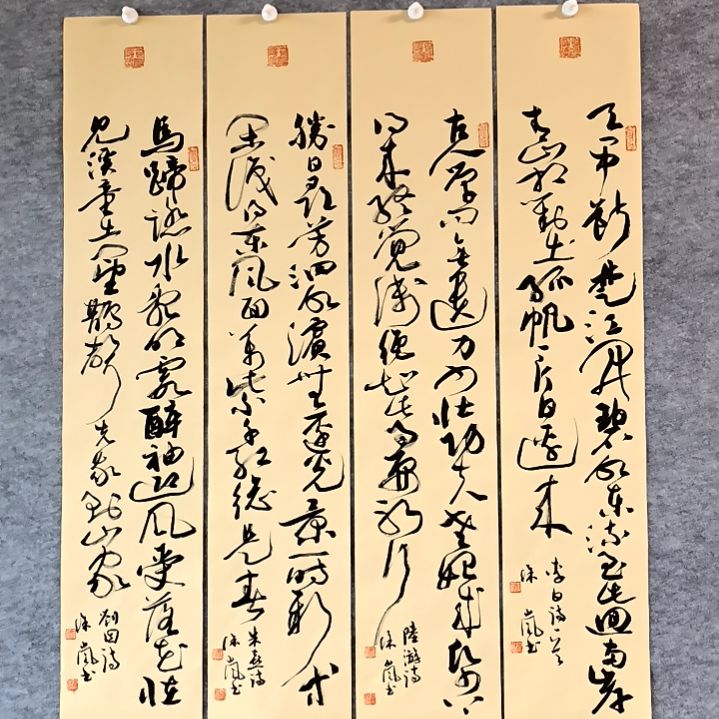 天門中斷楚江開碧水東流至此迴兩岸
青山相對出孤帆一片日邊來
李白詩一首
嵐書
古人學問無遺力少壯功夫老始成紙上
得來終覺淺絕知此事要躬行
陸游詩
嵐書
勝日尋芳泗水濱無邊光景一時新等
閑識得東風面萬紫千紅總是春
朱熹詩
嵐書
馬蹄踏水亂明霞醉袖迎風受落花怪
見溪童出門望鵲聲先我到山家
劉因詩
嵐書